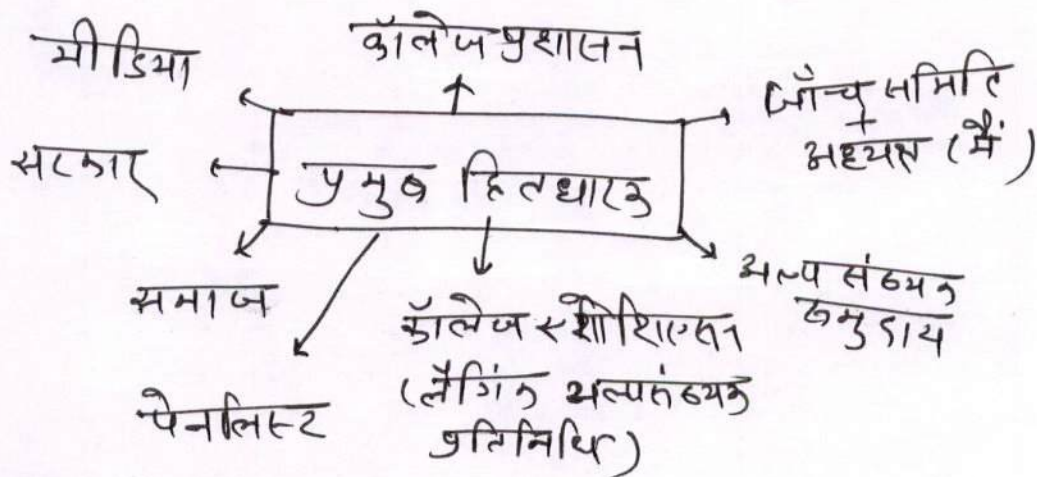 मीडिया
कॉलेज प्रशासन
जाँच समिति
+
अध्यक्ष (मैं)
सरकार
प्रमुख हितधारक
समाज
अल्प संख्यक
समुदाय
कॉलेज एशोशिएसन
(लैगिंक अल्पसंख्यक
प्रतिनिधि)
पेनलिस्ट